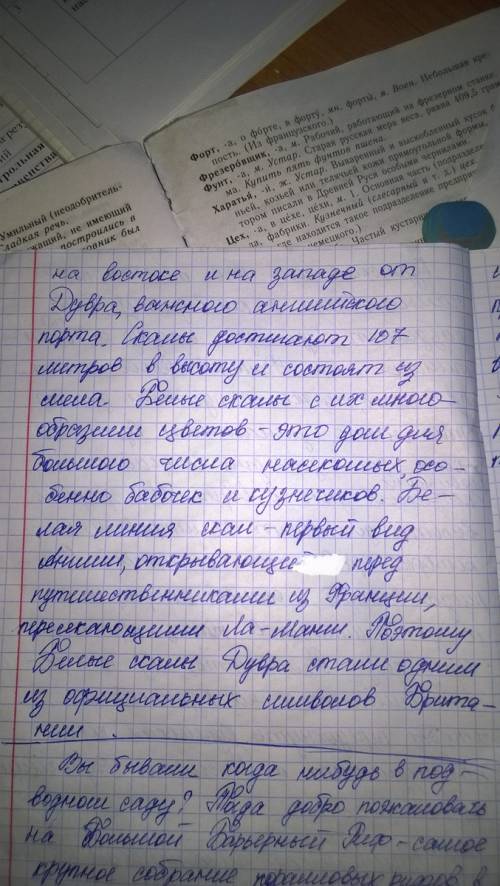 Форт, -а, о фо́рте, в форту́, мн. форты́, м. Воен. Небольшая кре-
пость. (Из французского.)
Фрезеровщик, -а, м. Рабочий, работающий на фрезерном станке.
Фунт, -а, м. Устар. Старая русская мера веса, равная 409,5 грам
ма. Купить пять фунтов пшена.
Харатья, -й, ж. Устар. Выпаренный и выскобленный кусок
ньей, козьей или телячьей кожи прямоугольной формы,
тором писали в Древней Руси особыми чернилами.
Цех, -а, в цехе, цехи, м. 1. Основная часть (подразде
да, фабрики. Кузнечный (слесарный и т. д.) цех.
где находится такое подразделение предпри
немецкого.)
Частый кустар
Умильный (неодобритель-
сладкая речь.
жащий, не имеющий
построились в
овник был
на востоке и на западе от
Дувра, важного английского
порта. Скалы достигают 107
метров в высоту и состоят из
мела. Белые скалы с их много-
образием цветов - это дом для
большого числа насекомых, осо-
бенно бабочек и кузнечиков. Бе-
лая линия скал - первый вид
Англии, открывающий перед
путешественниками из Франции,
пересекающими Ла-Манш. Поэтому
Белые скалы Дувра стали одним
из официальных символов Брита-
нии.
Вы бывали когда нибудь в под-
водном саду? Тогда добро пожаловать
на Большой Барьерный Риф - самое
крупное собрание коралловых рифов в